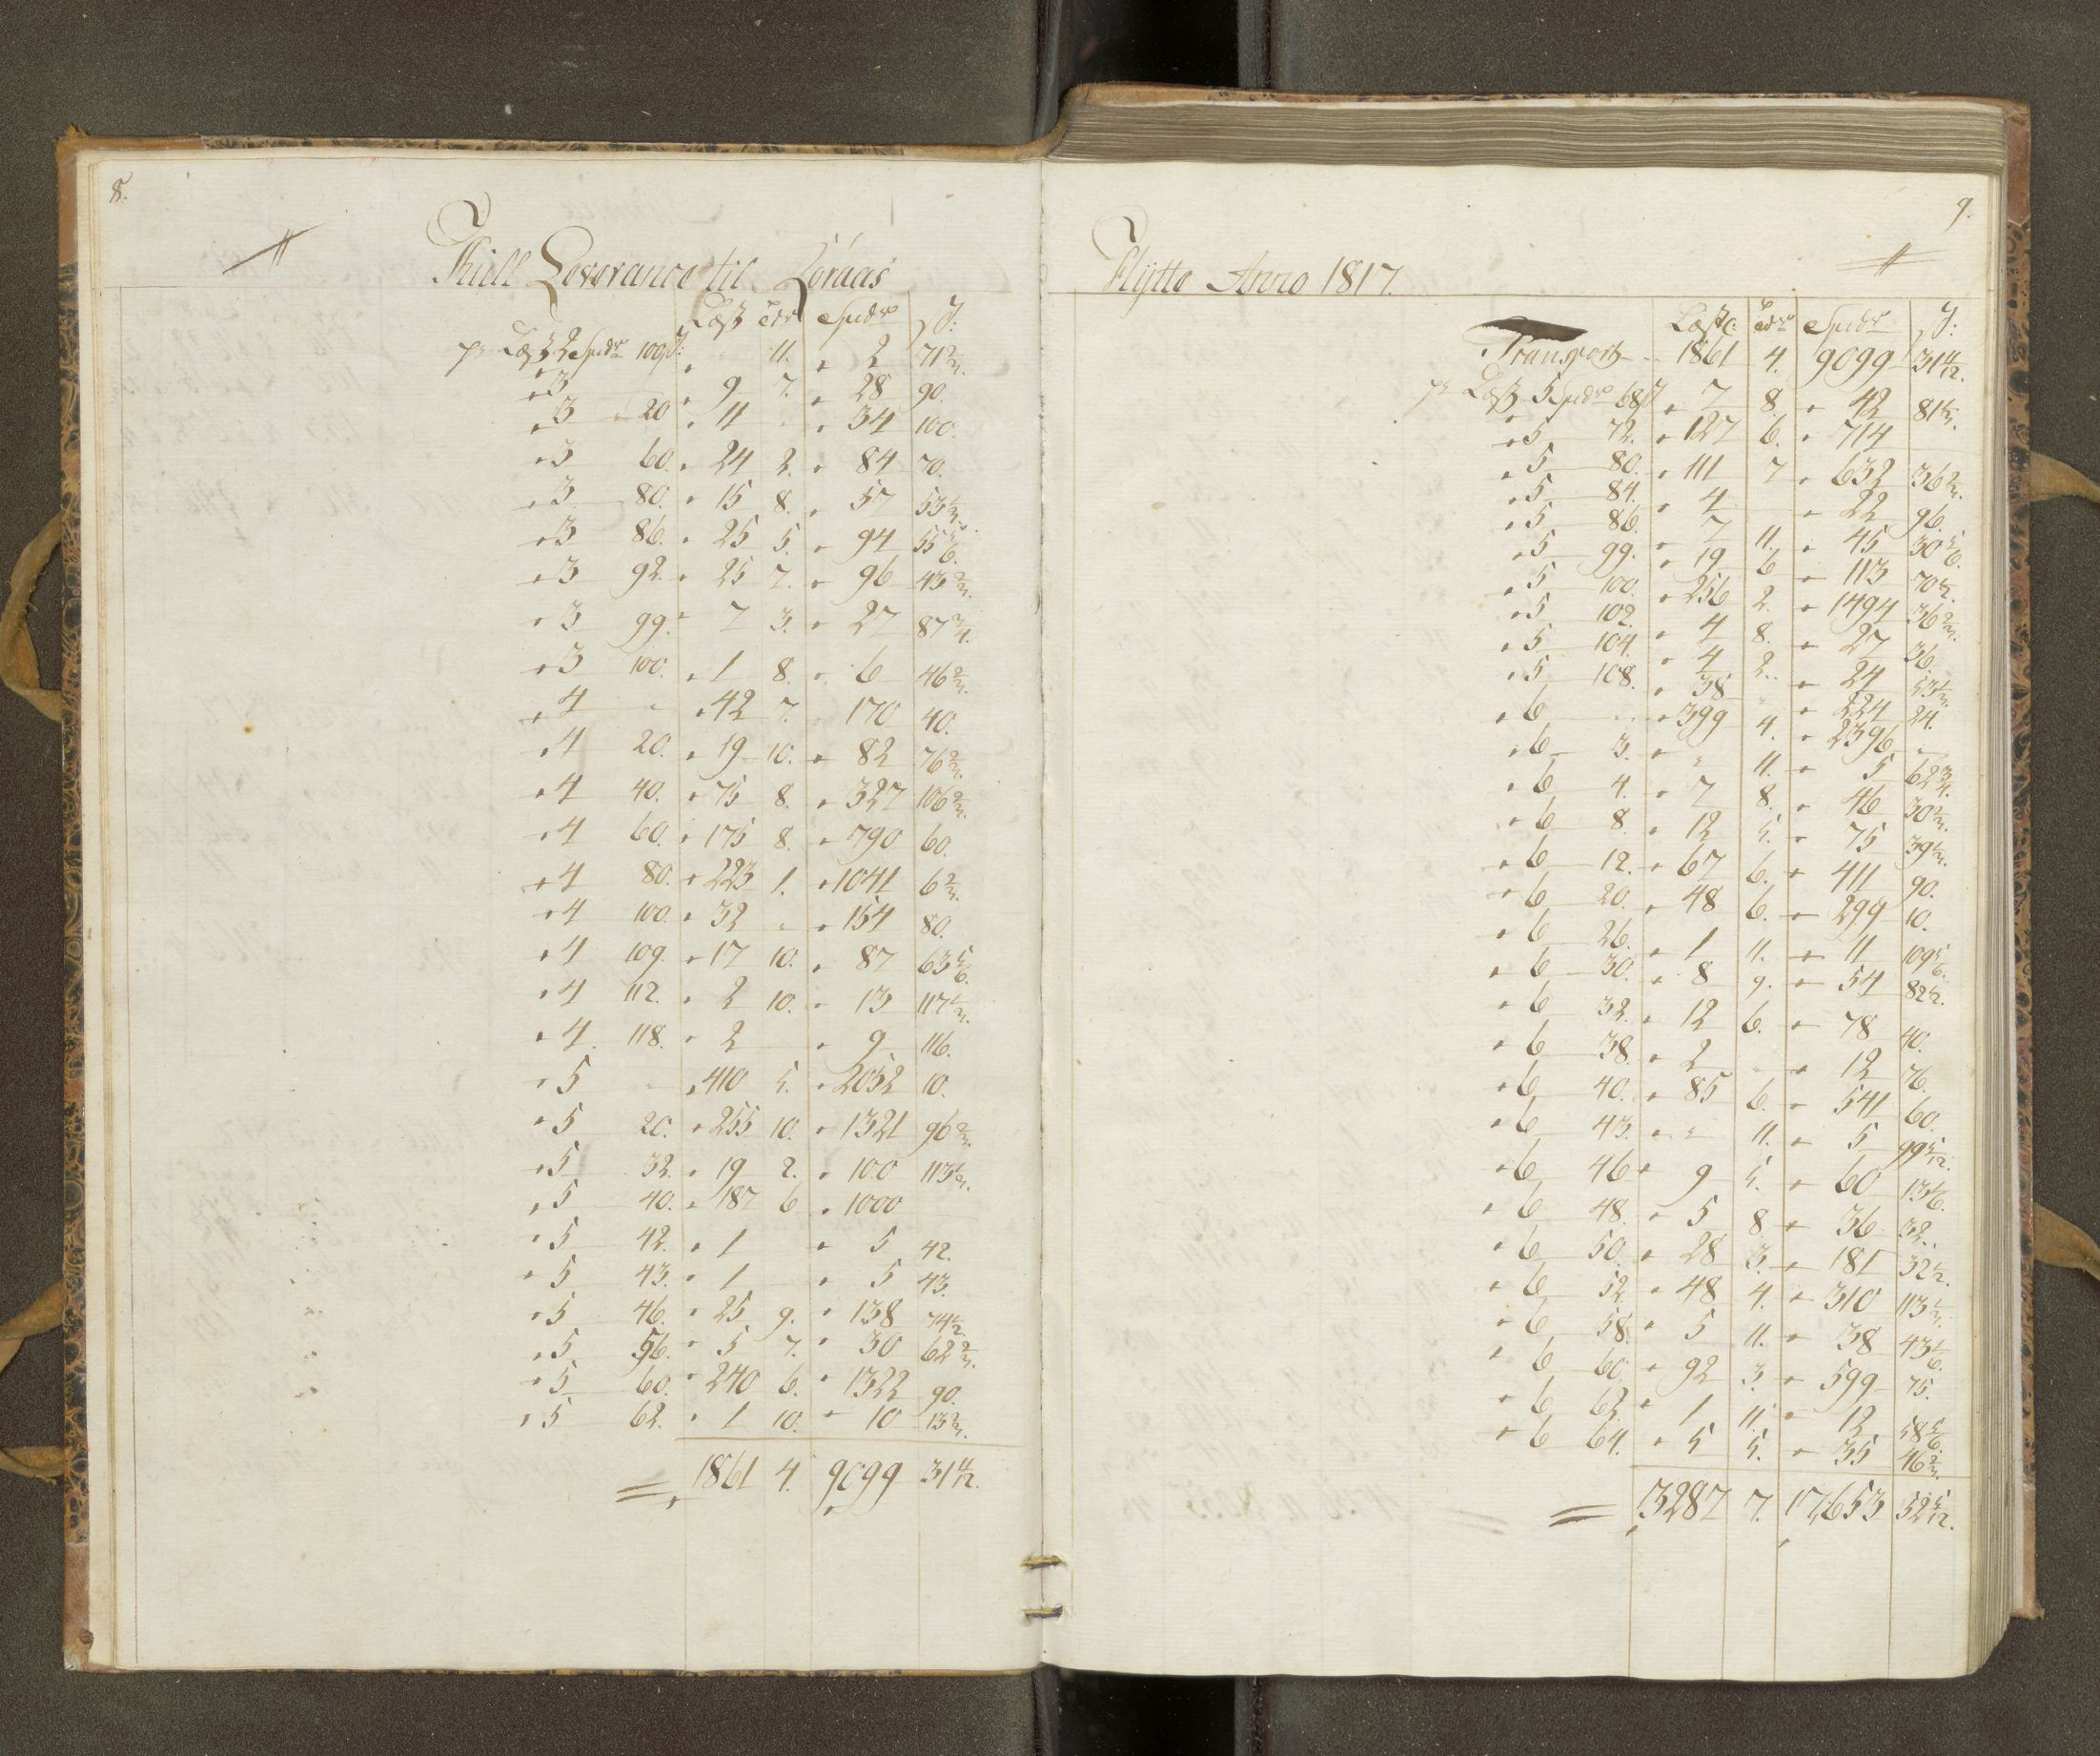 8.
Kull Leverance til Röraas
Læst tdr Spdr ß:
pr Læst 2 Spdr 100 ß: " 11. " 2 71 2/3.
" 3 " 9 7. " 28 90.
" 3 " 20 " 11 " " 34 100.
" 3 60. " 24 2. " 84 70.
" 3 80. " 15 8. " 57 53 1/3.
" 3 86. " 25 5. " 94 55 5/6.
" 3 92. " 25 7. " 96 43 2/3.
" 3 99. " 7 3. " 27 87 3/4.
" 3 100. " 1 8. " 6 46 2/3.
" 4 " " 42 7. " 170 40.
" 4 20. " 19 10. " 82 76 2/3.
" 4 40. " 75 8. " 327 106 2/3.
" 4 60. " 175 8. " 790 60.
" 4 80. " 223 1. " 1041 6 2/3.
" 4 100. " 32 " " 154 80.
" 4 109. " 17 10. " 87 63 5/6.
" 4 112. " 2 10. " 13 117 1/3.
" 4 118. " 2 " 9 116.
" 5 " " 410 5. " 2052 10.
" 5 20. " 255 10. " 1321 96 2/3.
" 5 32. " 19 2. " 100 113 1/3.
" 5 40. " 187 6 " 1000
" 5 42. " 1 " 5 42.
" 5 43. " 1 " 5 43.
" 5 46. " 25 9. " 138 74 1/2.
" 5 56. " 5 7. " 30 62 2/3.
" 5 60. " 240 6. " 1322 90.
" 5 62. " 1 10. " 10 13 2/3.
1861 4. 9099 31 4/12.
9.
Hÿtte Anno 1817.
Læst tdr Spdr ß:
Transport 1861 4. 9099 31 4/12.
pr Læst 5 Spdr 68 ß " 7 8. " 42 81 1/3.
" 5 72. " 127 6. " 714
" 5 80. " 111 7 " 632 36 2/3.
" 5 84. " 4 " 22 96.
" 5 86. " 7 11. " 45 30 5/6.
" 5 99. " 19 6 " 113 70 1/2.
" 5 100. " 256 2. " 1494 36 2/3.
" 5 102. " 4 8. " 27 36.
" 5 104. " 4 2. " 24 53 1/3.
" 5 108. " 38 " " 224 24.
" 6 " " 399 4. " 2396 "
" 6 3. " " 11. " 5 62 3/4.
" 6 4. " 7 8. " 46 30 2/3.
" 6 8. " 12 5. " 75 39 1/3.
" 6 12. " 67 6. " 411 90.
" 6 20. " 48 6. " 299 10.
" 6 26. " 1 11. " 11 109 5/6.
" 6 30. " 8 9. " 54 82 1/2.
" 6 32. " 12 6. " 78 40.
" 6 38. " 2 " " 12 76.
" 6 40. " 85 6. " 541 60.
" 6 43. " " 11. " 5 99 5/12.
" 6 46 " 9 5. " 60 13 1/6.
" 6 48. " 5 8 " 36 32.
" 6 50. " 28 3. " 181 32 1/2.
" 6 52. " 48 4. " 310 113 1/3.
" 6 58. " 5 11. " 38 43 1/6.
" 6 60. " 92 3. " 599 75.
" 6 62 " 1 11. " 12 58 5/6.
" 6 64. " 5 5. " 35 46 2/3.
3287 7. 17,653 52 5/12.